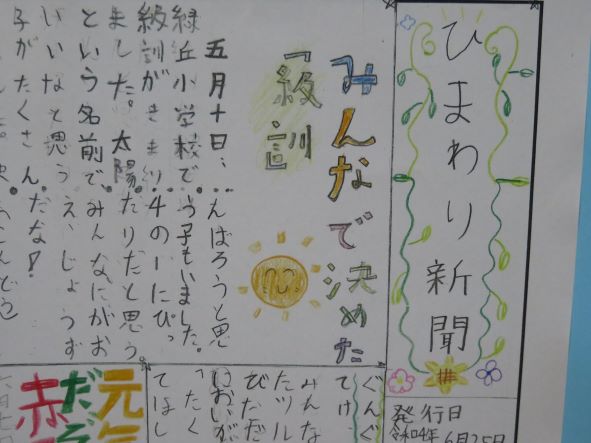 ひまわり新聞
発行日
令和4年
6月25日
みんなで決めた
「級訓」
五月十日、
緑丘小学校で
級訓がきまり
ました。太陽
という名前で
いいなと思う
子がたくさん
んばろうと思
う子もいました。
4の1にぴっ
たりだと思う。
みんなにがお
え、じょうず
だな!
ぐんぐ
てけ
みんな
たツル
びただ
たく
てほし
元気
だぞ
赤